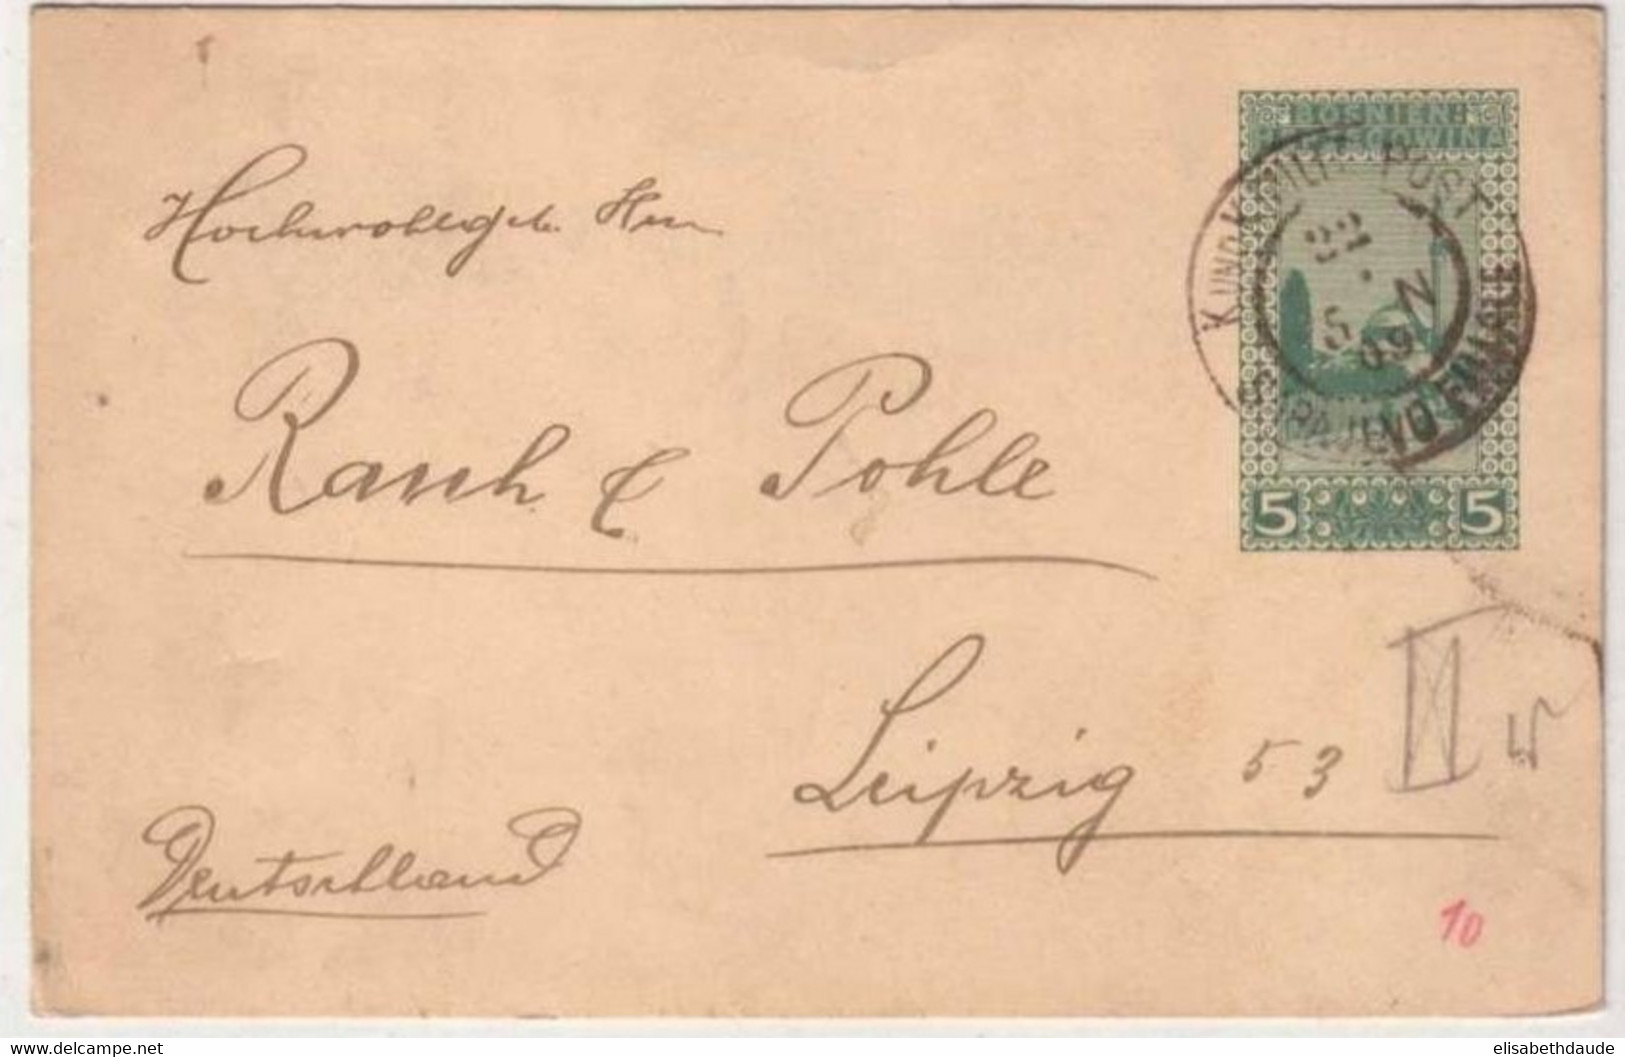 BOSNIEN-
HERCEGOWINA
K UND K MILIT. POST
22
5 09 N
SARAJEVO FILIALE
5 5
Hochwohlgeb. Herrn
Rauh & Pohle
Leipzig 53
Deutschland
10
elisabethdaude
delcampe.net